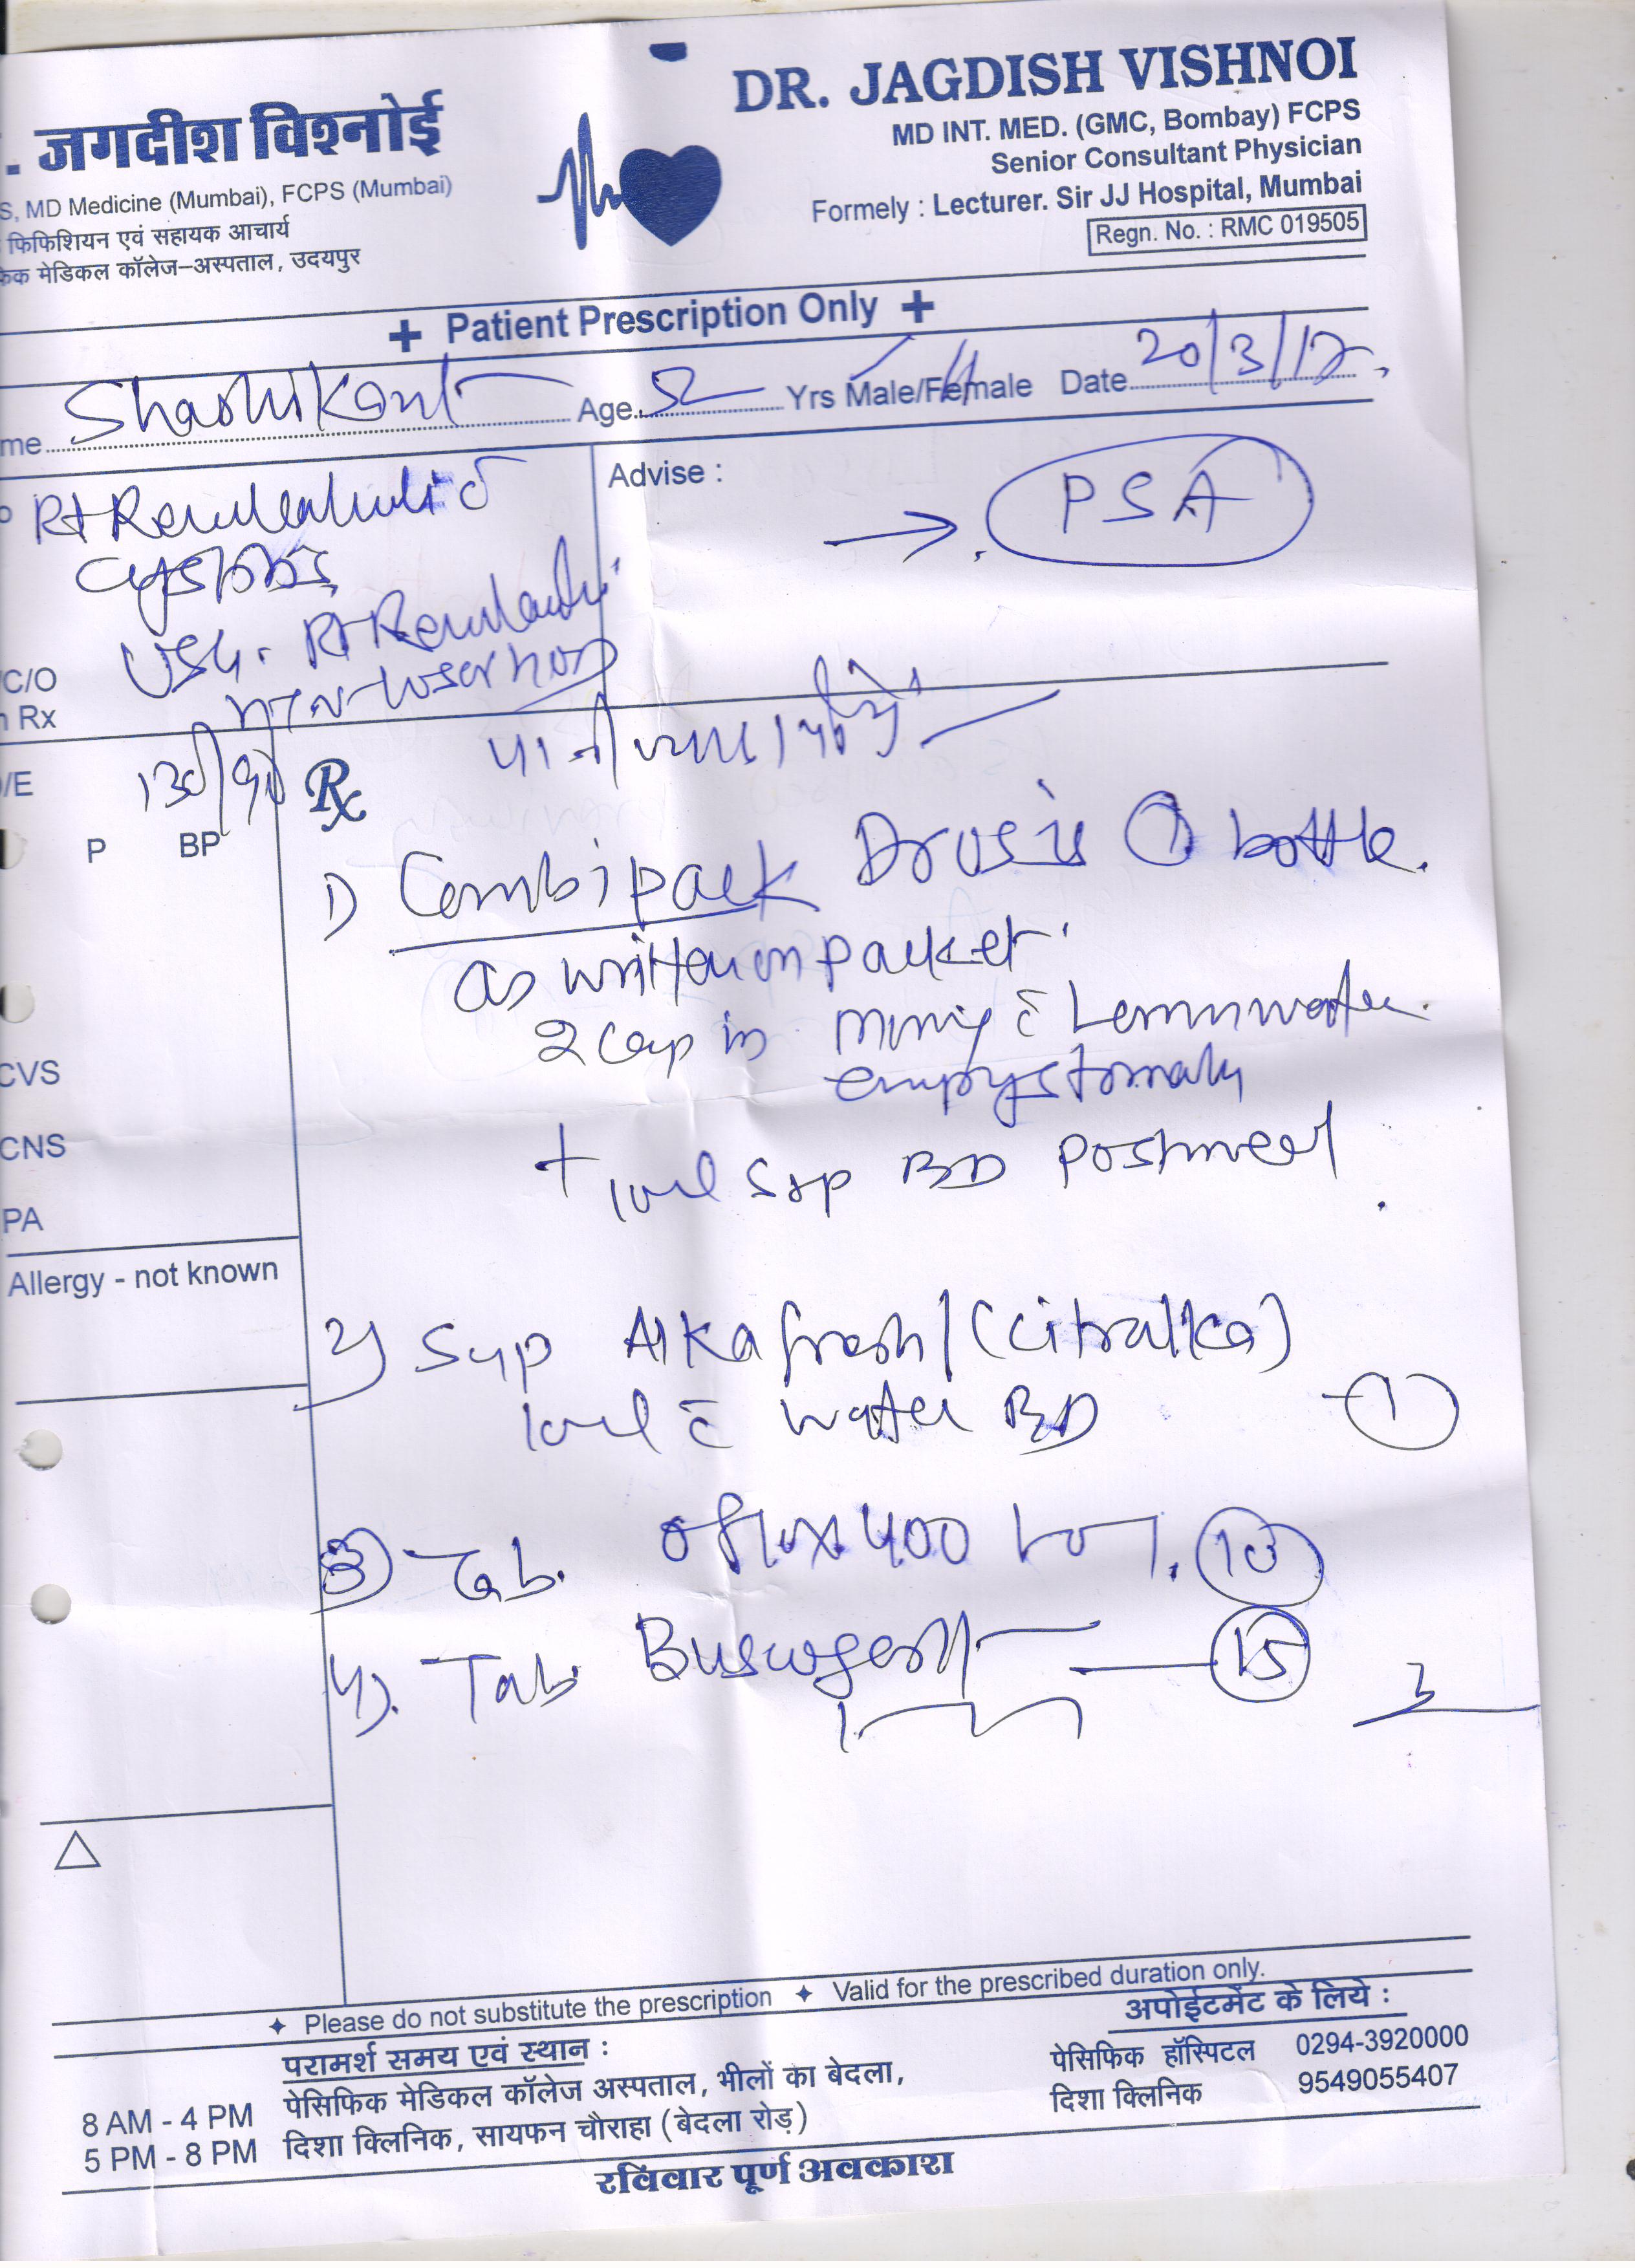 . जगदीश विश्नोई
S, MD Medicine (Mumbai), FCPS (Mumbai)
फिफिशियन एवं सहायक आचार्य
फिक मेडिकल कॉलेज–अस्पताल, उदयपुर
DR. JAGDISH VISHNOI
MD INT. MED. (GMC, Bombay) FCPS
Senior Consultant Physician
Formely : Lecturer. Sir JJ Hospital, Mumbai
Regn. No. : RMC 019505
+ Patient Prescription Only +
me Shashikant Age 52 Yrs Male/Female Date 20/3/17
Rt Renal c̄
USG. Rt Renal
C/O
Rx
Advise :
→ PSA
/E
130/90
P BP
CVS
CNS
PA
Allergy - not known
Rx
पानी ज्यादा पीये
1) Combipack 1 bottle.
as written on packet
2 cap in morning c̄ Lemon water
empty stomach
+ 10ml Syp BD Postmeal
2) Syp Alkafresh/(Citralka)
10ml c̄ water BD - 1
3) Tab. Oflox 400 10
4). Tab. Buscogast — 15
△
✦ Please do not substitute the prescription ✦ Valid for the prescribed duration only.
परामर्श समय एवं स्थान :
8 AM - 4 PM पेसिफिक मेडिकल कॉलेज अस्पताल, भीलों का बेदला,
5 PM - 8 PM दिशा क्लिनिक, सायफन चौराहा (बेदला रोड़)
अपोईटमेंट के लिये :
पेसिफिक हॉस्पिटल 0294-3920000
दिशा क्लिनिक 9549055407
रविवार पूर्ण अवकाश